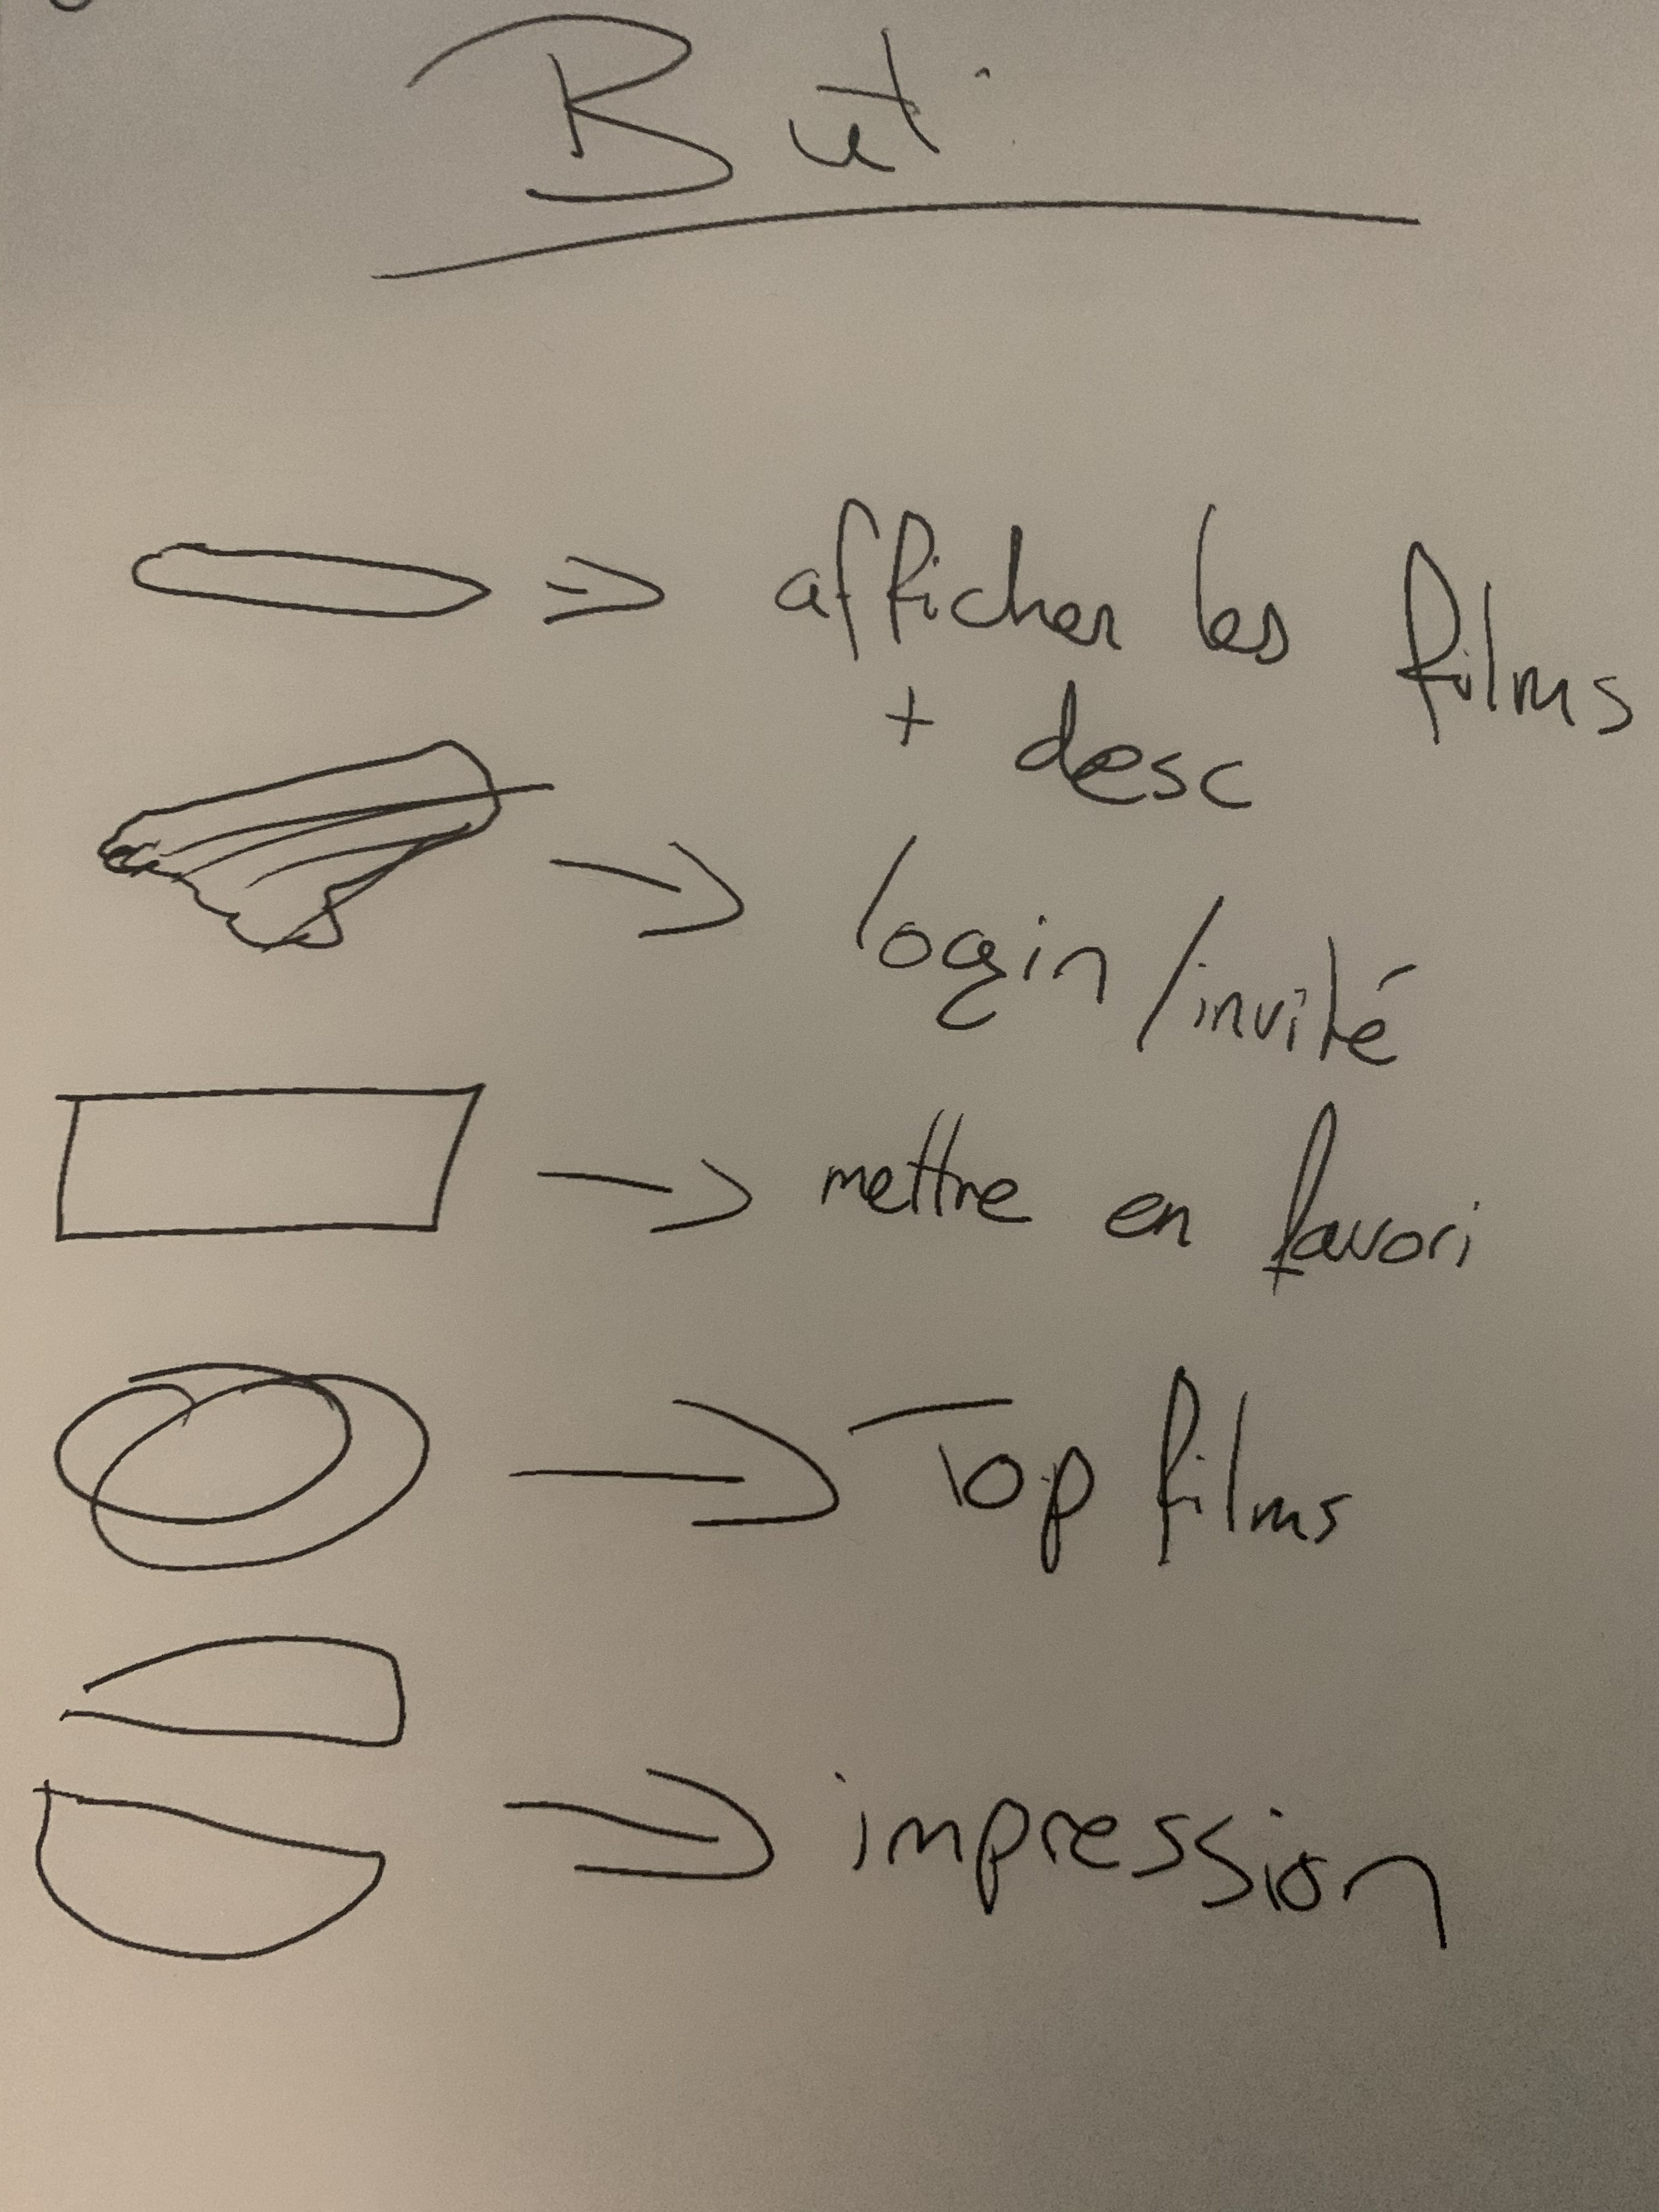 But :
afficher les films
+ desc
login/invité
mettre en favori
Top films
impression